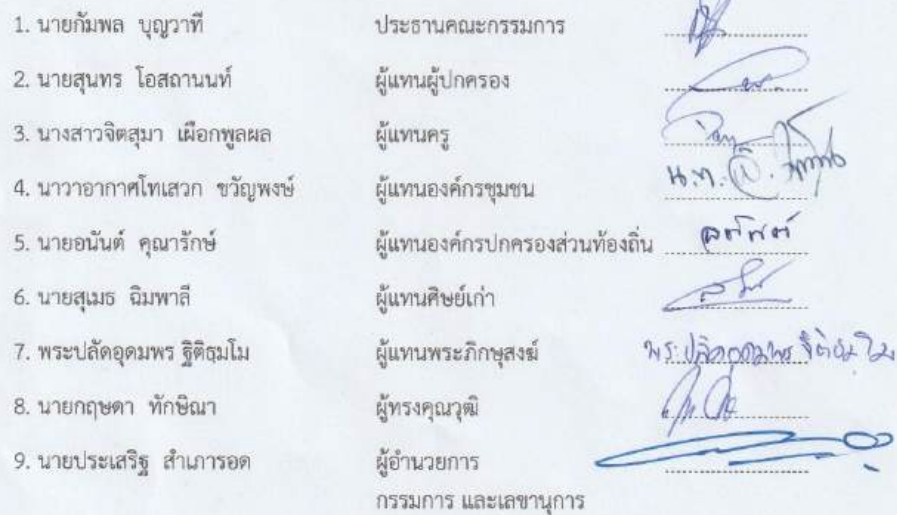 1. นายกัมพล บุญวาที ประธานคณะกรรมการ
2. นายสุนทร โอสถานนท์ ผู้แทนผู้ปกครอง
3. นางสาวจิตสุมา เผือกพูลผล ผู้แทนครู
4. นาวาอากาศโทเสวก ขวัญพงษ์ ผู้แทนองค์กรชุมชน น.ท.
5. นายอนันต์ คุณารักษ์ ผู้แทนองค์กรปกครองส่วนท้องถิ่น
6. นายสุเมธ ฉิมพาลี ผู้แทนศิษย์เก่า
7. พระปลัดอุดมพร ฐิติธฺมโม ผู้แทนพระภิกษุสงฆ์ พระปลัดอุดมพร
8. นายกฤษดา ทักษิณา ผู้ทรงคุณวุฒิ
9. นายประเสริฐ สำเภารอด ผู้อำนวยการ
กรรมการ และเลขานุการ